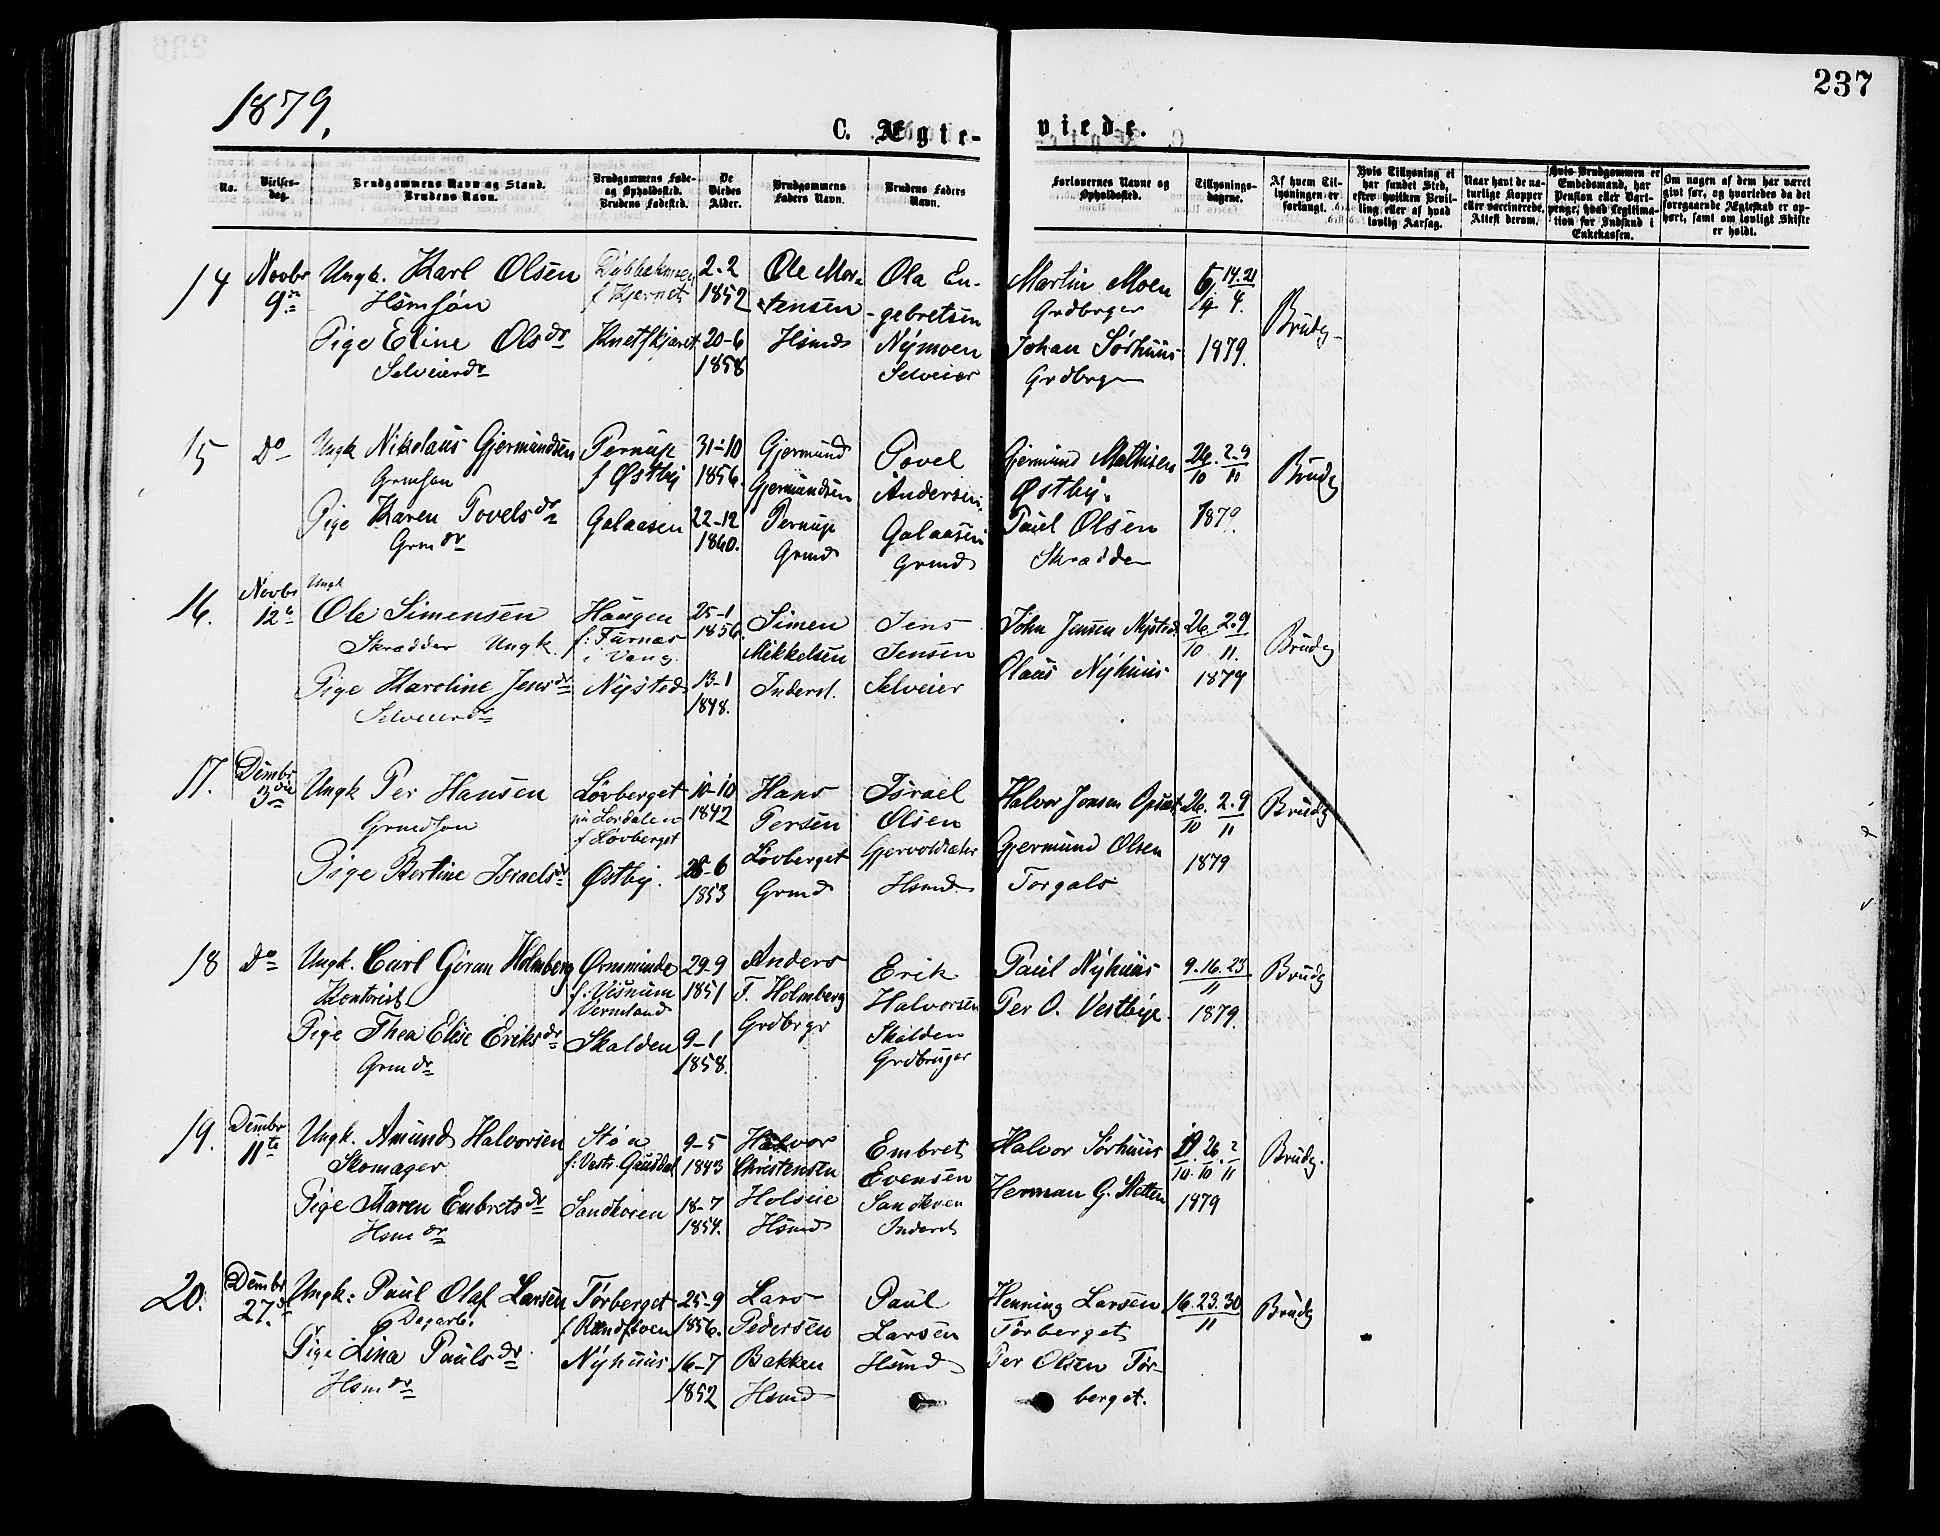 237
1879.
C. Ægte-viede.
No.
Vielses-dag.
Brudgommens Navn og Stand.
Brudens Navn.
Brudgommens Føde- og Opholdssted.
Brudens Fødested.
De Viedes Alder.
Brudgommens Faders Navn.
Brudens Faders Navn.
Forlovernes Navne og Opholdssted.
Tillysnings-dagene.
Af hvem Til-lysningen er forlangt.
Hvis Tillysning ei har fundet Sted, efter hvilken Bevil-ling eller af hvad lovlig Aarsag.
Naar havt de na-turlige Kopper eller vaccinerede, Attest derom.
Hvis Brudgommen er Embedsmand, har Pension eller Vart-penge, hvad Legitima-tion for Indskud i Enkekassen.
Om nogen af dem har været givt før, og hvorledes da det foregaaende Ægteskab er op-hørt, samt om lovligt Skifte er holdt.
14 Novbr 9de
Ungk. Karl Olsen
Hsmsøn
Pige Eline Olsdr
Selveierdr
2-2 1852
20-6 1858
Ole Mor-
tensen
Hsmd
Ola En-
gebretsen
Nymoen
Selveier
Martin Moen
Grdbrger
Johan Sørhuus
Grdbrger
1879.
Brudg-
15 Do
Ungk Nikolaus Gjermundsen
Grmsøn
Pige Karen Povelsdr
Grmdr
Pernup
f Østby
Galaasen
31-10 1856.
22-12 1860.
Gjermund
Gjermundsen
Pernup
Grmd
Povel
Andersen
Galaasen
Grmd
Gjermund Mathisen
Østby.
Paul Olsen
Skrædder
26/10. 2.9/11
1879.
Brudg
16. Novbr 12te
Ungk
Ole Simensen
Skrædder Ungk.
Pige Karoline Jensdr
Selveierdr
Haugen
f: Furnæs
i Vang.
Nysted
25-1 1856.
13-1 1848.
Simen
Mikkelsen
Inderst.
Jens
Jensen
Selveier
John Jensen Nysted
Olaus Nyhuus
26/10. 2.9/11.
1879
Brudg
17. Dcmbr 3die
Ungk Per Hansen
Grmdsøn
Pige Bertine Israelsdr
Løvberget
paa Lørdalen
f Løvberget
Østby.
10-10 1842
26-6 1853
Hans
Persen
Løvberget
Grmd
Israel
Olsen
Hsmd.
Halvor Jonsen Opsæt
Gjermund Olsen
Torgals
26/10. 2.9/11
1879
Brudg
18 Do
Ungk. Carl Gøran Holmberg
Kontorist
Pige Thea Elise Eriksdr
Grmdr
f: Visnum
Vermland
Skalden
29-9 1851
9-1 1858.
Anders
F. Holmberg
Grdbrgr
Erik
Halvorsen
Skalden
Grdbruger
Paul Nyhuus
Per O. Vestby.
9.16.23/11
1879.
Brudg
19. Dcmbr 11te
Ungk. Amund Halvorsen
Skomager
Pige Maren Embretsdr
Hsmdr
Støa
f: Vestr. Gausdal
Sandkvien
9-5 1843
18-7 1854.
Halvor
Christensen
Holseie
Hsmd
Embret
Evensen
Sandkven
Inderst
Halvor Sørhuus
Herman G. Sletten
19/10. 26/10. 2/11
1879
Brudg.
20. Dcmbr 27de
Ungk: Paul Olaf Larsen
Dagarb.
Pige Lina Paulsdr
Hsmdr
Tørberget
Nyhuus
25-9 1856.
16-7 1852
Lars
Pedersen
Bakken
Hsmd
Paul
Larsen
Hsmd
Henning Larsen
Tørberget
Per Olsen Tør-
berget.
16.23.30/11
Brudg